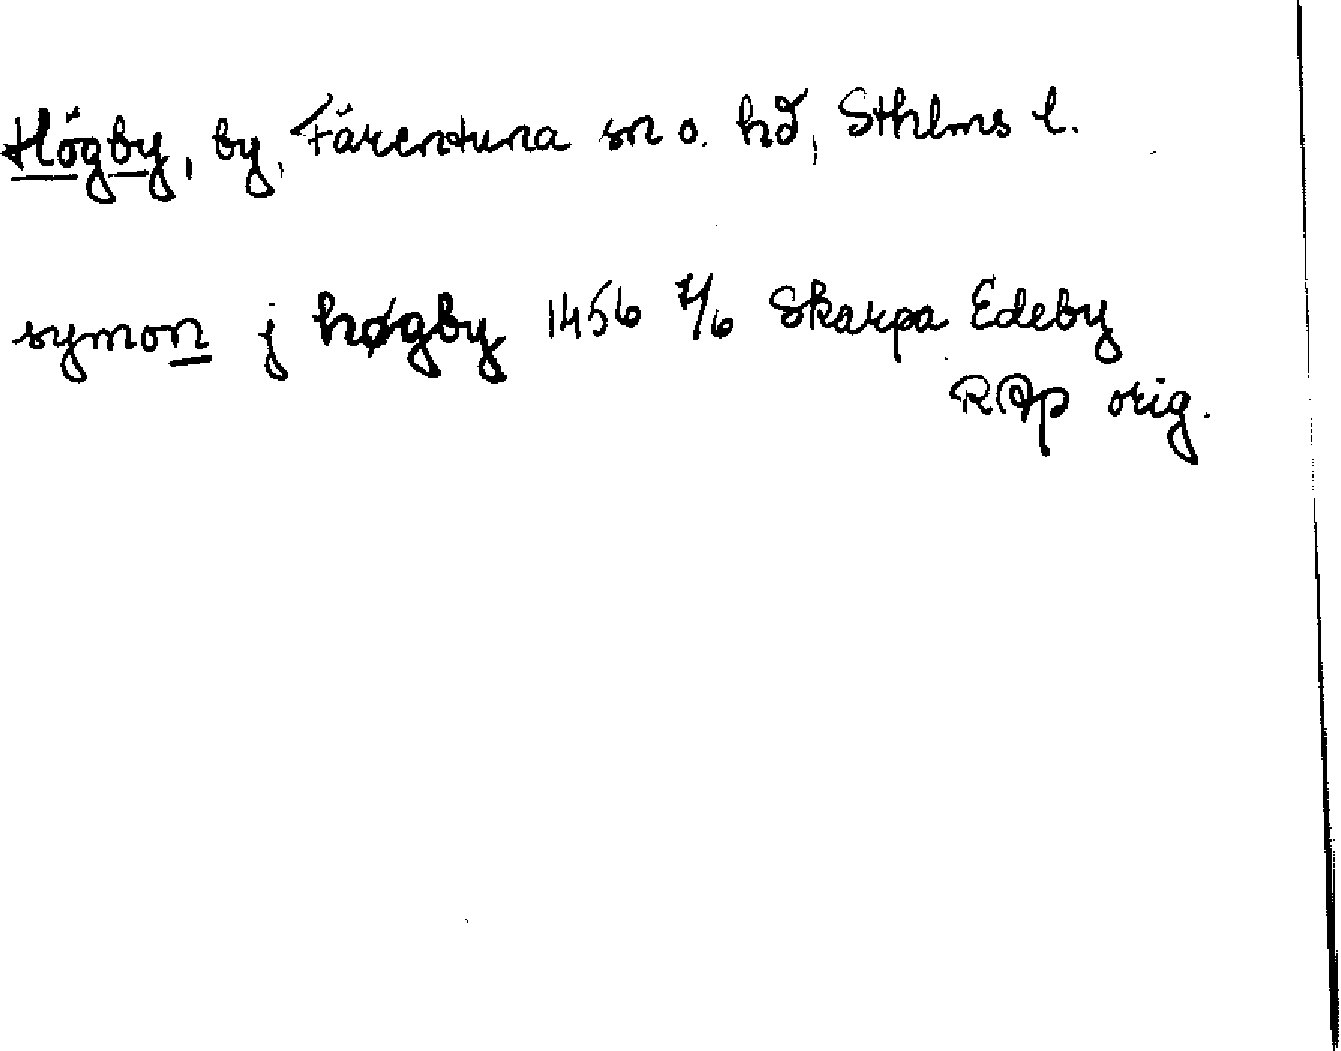 Högby, by, Färentuna sn o. hd, Sthlms l.
symon j høgby 1456 7/6 Skarpa Edeby
RAp orig.